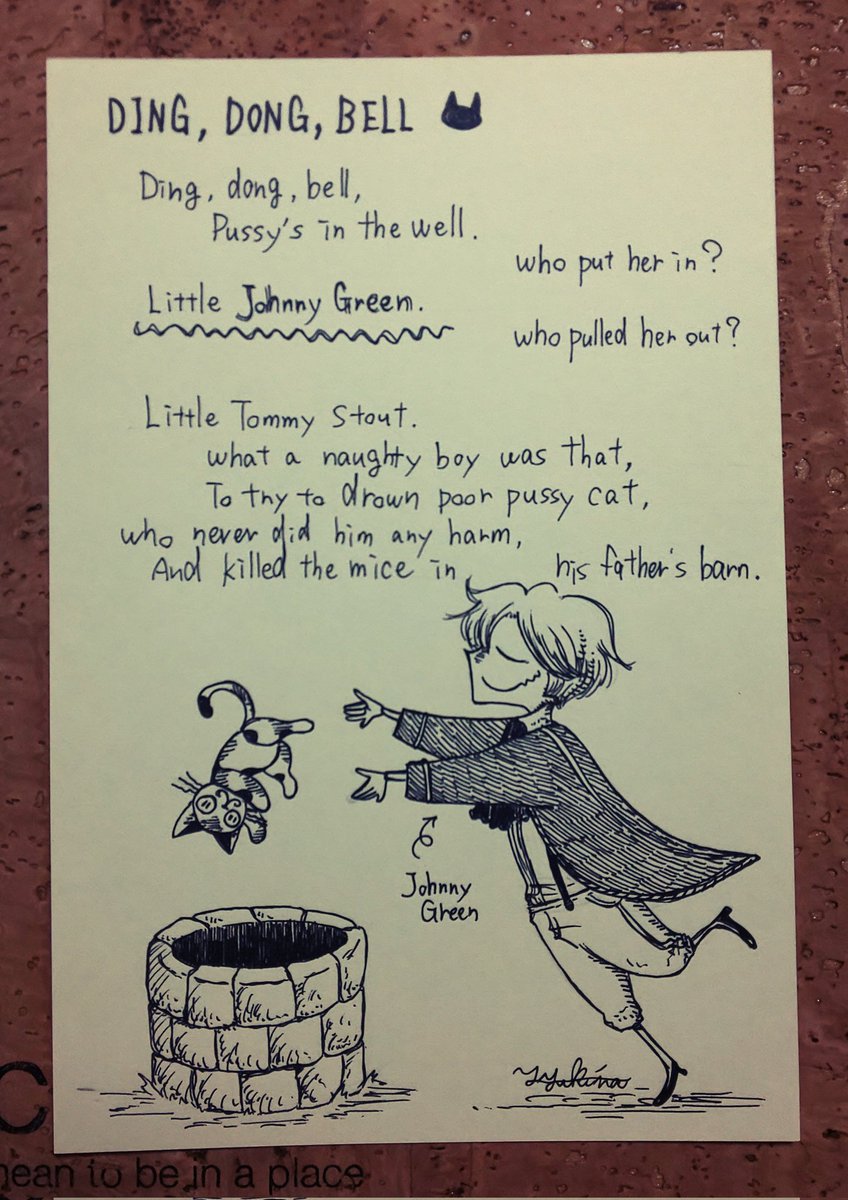 DING, DONG, BELL
Ding, dong, bell,
Pussy's in the well.
who put her in?
Little Johnny Green.
who pulled her out?
Little Tommy Stout.
what a naughty boy was that,
To try to drown poor pussy cat,
who never did him any harm,
And killed the mice in his father's barn.
Johnny
Green
mean to be in a place